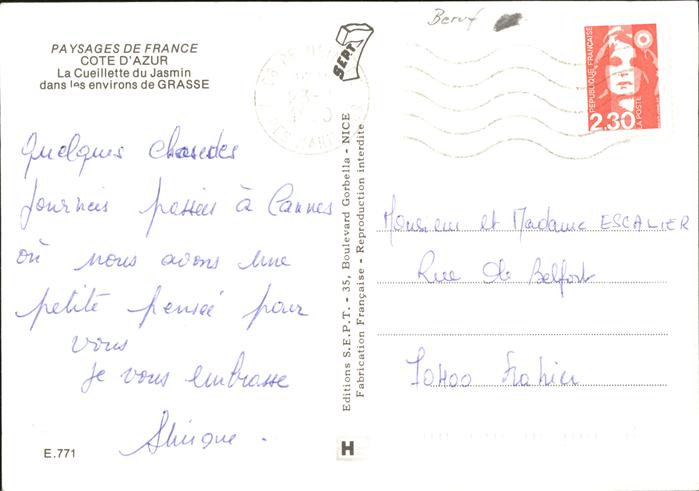 PAYSAGES DE FRANCE
COTE D'AZUR
La Cueillette du Jasmin
dans les environs de GRASSE
SEPT
7
REPUBLIQUE FRANÇAISE
LA POSTE
2,30
Quelques chaudes
journées passées à Cannes
où nous avons une
petite pensée pour
vous
je vous embrasse
E.771
Editions S.E.P.T. - 35, Boulevard Gorbella - NICE
Fabrication Française - Reproduction interdite
H
Monsieur et Madame ESCALIER
Rue de Belfort
Frahier